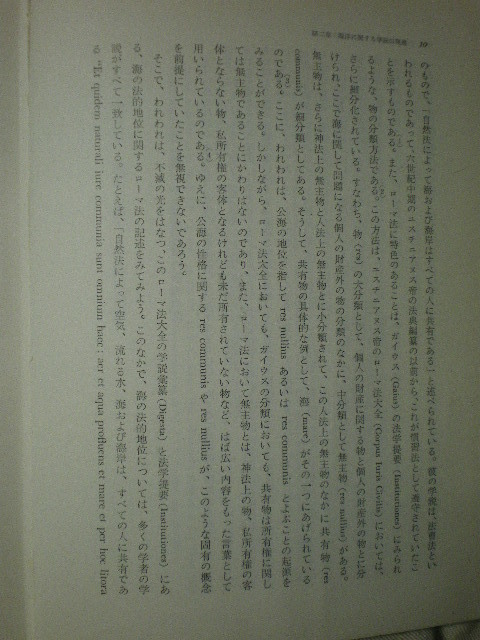 10　第二章　海洋に関する学説の発達
のもので、「自然法によって海および海岸はすべての人に共有である」と述べられている。彼の学説は、法官法とい
われるものであって、六世紀中期のユスチニアヌス帝の法典編纂の以前から、これが慣習法として遵守されていたこ
とを示すものである。また、ローマ法に特色のあることは、ガイウス（Gaius）の法学提要（Institutiones）にみられ
るような、物の分類方法である。この方法は、ユスチニアヌス帝のローマ法大全（Corpus Iuris Civilis）においては、
さらに細分化されている。すなわち、物（res）の大分類として、個人の財産に関する物と個人の財産外の物とに分
けられ、ここで海に関して問題になる個人の財産外の物の分類のなかに、中分類として無主物（res nullius）がある。
無主物は、さらに神法上の無主物と人法上の無主物とに小分類されて、この人法上の無主物のなかに共有物（res
communis）が細分類としてある。そうして、共有物の具体的な例として、海（mare）がその一つにあげられている
のである。ここに、われわれは、公海の地位を指して res nullius あるいは res communis とよぶことの起源を
みることができる。しかしながら、ローマ法大全においても、ガイウスの分類においても、共有物は所有権に関し
ては無主物であることにかわりはないのであり、また、ローマ法において無主物とは、神法上の物、私所有権の客
体とならない物、私所有権の客体となるけれども未だ所有されていない物など、はば広い内容をもった言葉として
用いられているのである。ゆえに、公海の性格に関する res communis や res nullius が、このような固有の概念
を前提にしていたことを無視できないであろう。
そこで、われわれは、不滅の光をはなつ、このローマ法大全の学説彙纂（Digesta）と法学提要（Institutiones）にあ
る、海の法的地位に関するローマ法の記述をみてみよう。このなかで、海の法的地位については、多くの学者の学
説がすべて一致している。たとえば、「自然法によって空気、流れる水、海および海岸は、すべての人に共有であ
る “Et quidem naturali iure communia sunt omnium haec: aer et aqua profluens et mare et per hoc litora